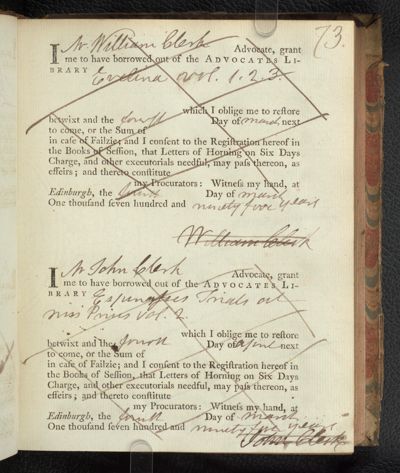 73.
I Mr William Clerk Advocate, grant
me to have borrowed out of the ADVOCATES LI-
BRARY Evelina vol. 1. 2 3.
which I oblige me to reſtore
betwixt and the fourth Day of march next
to come, or the Sum of
in caſe of Failzie; and I conſent to the Regiſtration hereof in
the Books of Seſſion, that Letters of Horning on Six Days
Charge, and other executorials needful, may paſs thereon, as
effeirs; and thereto conſtitute
my Procurators: Witneſs my hand, at
Edinburgh, the fourth Day of march
One thouſand ſeven hundred and ninety five years
William Clerk
I Mr John Clerk Advocate, grant
me to have borrowed out of the ADVOCATES LI-
BRARY Espinasses Trials at
niss Prius Vol. 2.
which I oblige me to reſtore
betwixt and the fourth Day of april next
to come, or the Sum of
in caſe of Failzie; and I conſent to the Regiſtration hereof in
the Books of Seſſion, that Letters of Horning on Six Days
Charge, and other executorials needful, may paſs thereon, as
effeirs; and thereto conſtitute
my Procurators: Witneſs my hand, at
Edinburgh, the fourth Day of march
One thouſand ſeven hundred and ninety five years
John Clerk